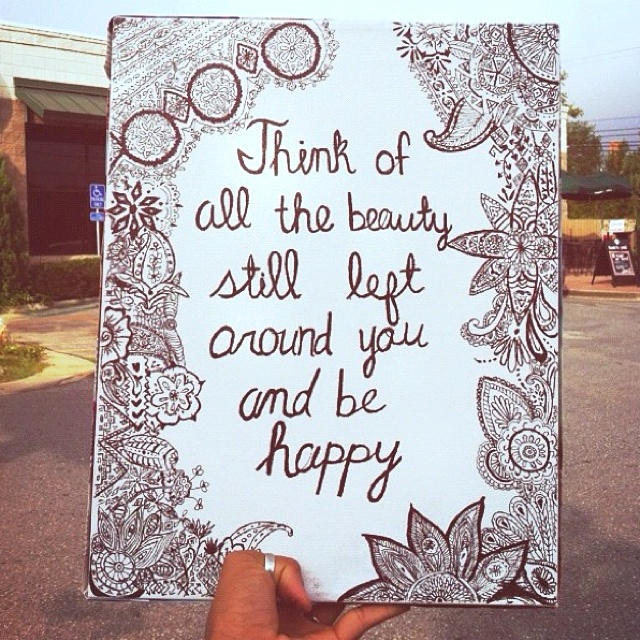 Think of
all the beauty
still left
around you
and be
happy